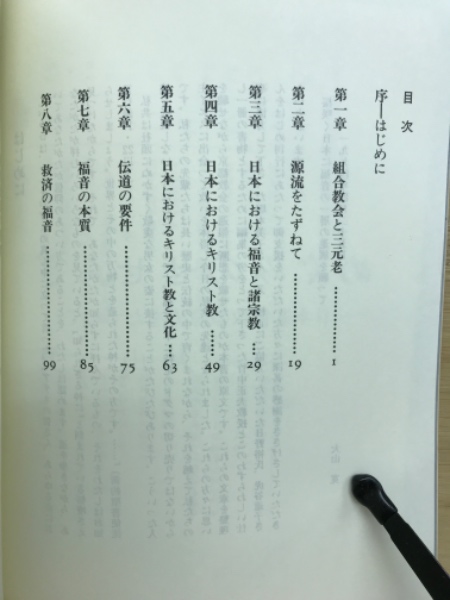 目次
序―はじめに
第一章 組合教会と三元老 …………… 1
第二章 源流をたずねて …………… 19
第三章 日本における福音と諸宗教 …… 29
第四章 日本におけるキリスト教 ……… 49
第五章 日本におけるキリスト教と文化 … 63
第六章 伝道の要件 …………… 75
第七章 福音の本質 …………… 85
第八章 救済の福音 …………… 99